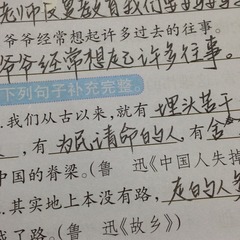 老师反复教育我们
爷爷经常想起许多过去的往事。
爷爷经常想起许多往事。
下列句子补充完整。
.我们从古以来,就有埋头苦干
,有为民请命的人,有舍
中国的脊梁。(鲁 迅《中国人失掉
.其实地上本没有路,走的人多
成了路。(鲁 迅《故乡》)